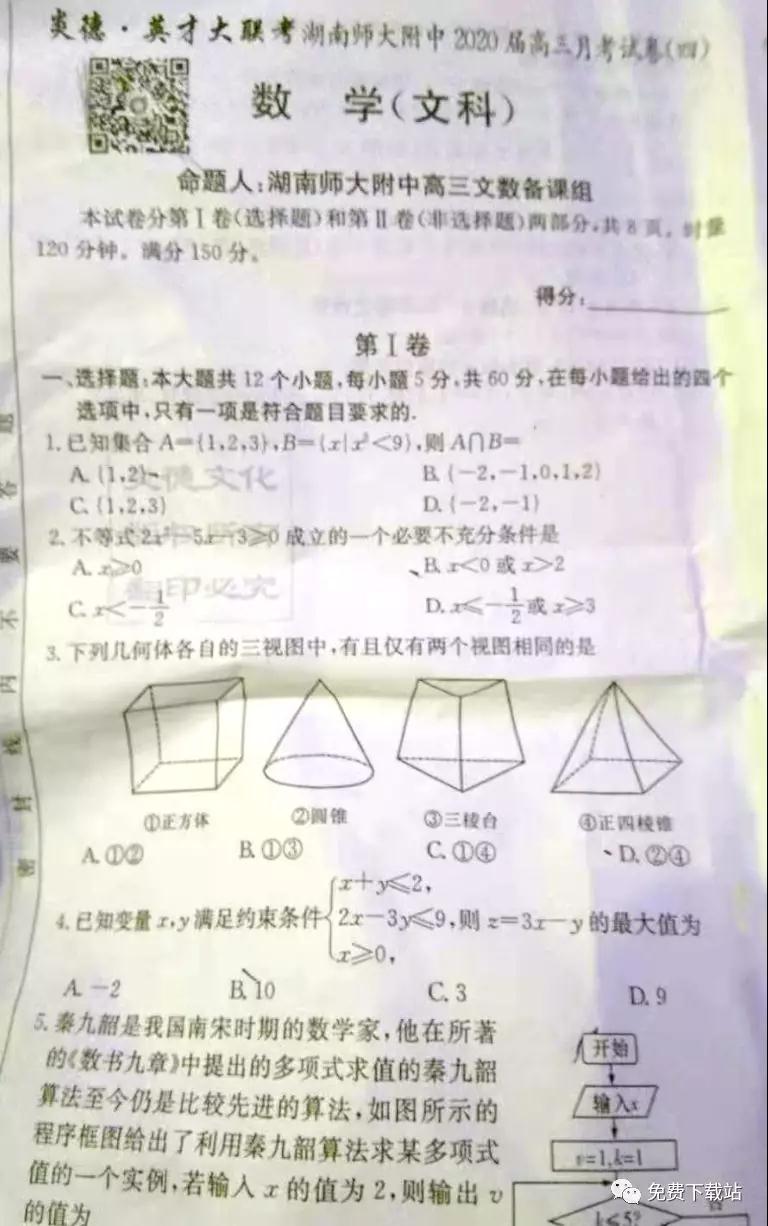 炎德·英才大联考湖南师大附中2020届高三月考试卷(四)
数 学(文科)
命题人:湖南师大附中高三文数备课组
本试卷分第Ⅰ卷(选择题)和第Ⅱ卷(非选择题)两部分,共8页。时量
120分钟。满分150分。
得分:
第Ⅰ卷
一、选择题:本大题共12个小题,每小题5分,共60分,在每小题给出的四个
选项中,只有一项是符合题目要求的.
1.已知集合A={1,2,3},B={x|x²<9},则A∩B=
A.{1,2} B.{-2,-1,0,1,2}
C.{1,2,3} D.{-2,-1}
2.不等式2x²-5x-3≥0成立的一个必要不充分条件是
A.x≥0 B.x<0或x>2
C.x<-1/2 D.x≤-1/2或x≥3
版权所有
翻印必究
3.下列几何体各自的三视图中,有且仅有两个视图相同的是
①正方体 ②圆锥 ③三棱台 ④正四棱锥
A.①② B.①③ C.①④ D.②④
4.已知变量x,y满足约束条件{x+y≤2, 2x-3y≤9, x≥0,则z=3x-y的最大值为
A.-2 B.10 C.3 D.9
5.秦九韶是我国南宋时期的数学家,他在所著
的《数书九章》中提出的多项式求值的秦九韶
算法至今仍是比较先进的算法,如图所示的
程序框图给出了利用秦九韶算法求某多项式
值的一个实例,若输入x的值为2,则输出v
的值为
开始
输入x
v=1,k=1
k≤5?
否
密封线内不要答题
免费下载站